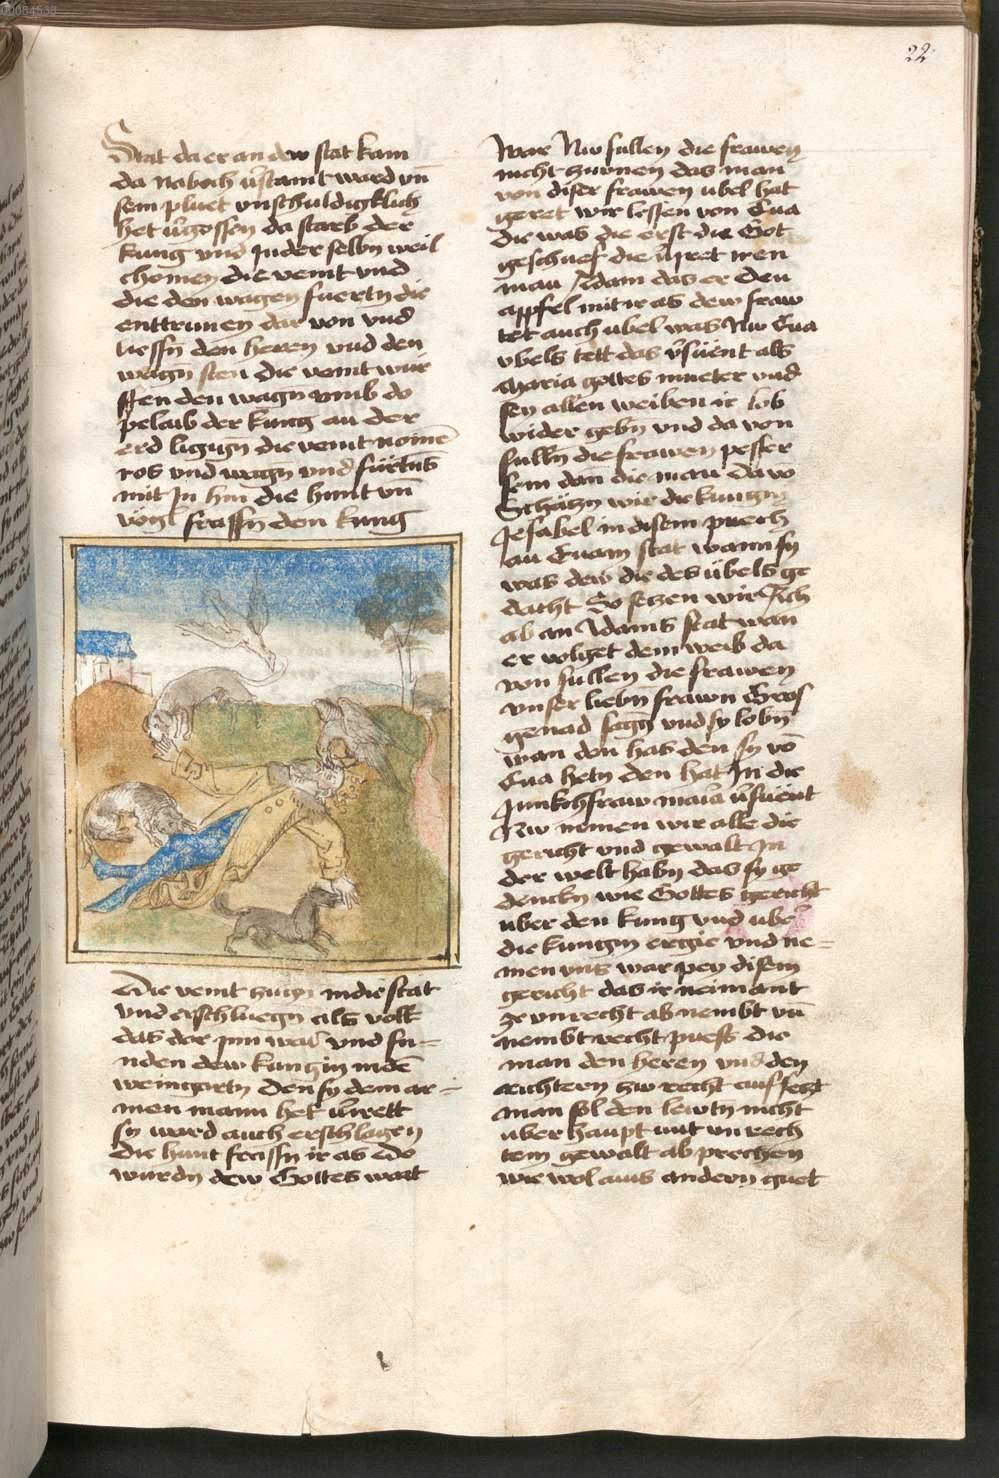 22
Stat da er an dew stat kam
da Naboth v̄stamt ward vn̄
sein pluet vnschuldigklich
het v̄gossen da starb der
kung vnd in der selbn weil
chomen die veint vnd
die den wagen fuertn die
enttrunen dar von vnd
liessn den heren vnd den
wagn sten die veint wur
ffen den wagn vmb do
pelaib der kung an der
erd ligugn die veint nomē
ros vnd wagn vnd fürtns
mit In hin die hunt vn̄
vogl frassn den kung
Die veint zugn in die stat
vnd erschluegn als volk
das dar Inn war vnd fu=
nden dew kungin in dē
weingartn den sy dem ar=
men mann het v̄rett
sy ward auch erschlagen
die hunt frassn ir as Do
wurdn dew Gottes wart
war Nw sullen die frawen
nicht zurnen das man
von diser frawen ubel hat
geret wir lessen von Eua
die was die erst die Got
geschuef die v̄ret iren
man Adam das er den
appfel mit ir as dew fraw
tet auch ubel was Nw Eua
vbels tett das v̄süent als
Maria gottes mueter vnd
sey allen weiben ir lob
wider gebn vnd da von
sulln die frawen pesser
sein dan die man da wo
Schäzn wir die kungin
Jesabel in disem puech
an Euam stat wann sy
was dew die des übels ge
dacht So sezen wir Ach
ab an Adams stat wan
er volget dem weib da
von sullen die frawen
vnser liebn frawn Gros
genad sagn vnd sy lobn
wan den has den sy vō
Eua hetn den hat In die
Junkchfraw maia v̄süent
Nw nemen wir alle die
gericht vnd gewalt In
der welt habn das sy ge
denckn wie Gottes gericht
uber den kung vnd uber
die kungin ergie vnd ne=
men vns war pey disem
gericht das ir neimant
ze vnrecht ab nembt vn̄
nembt recht puess die
man den heren vnd den
richtern zw recht auf sezt
man sol den lewtn nicht
uber haupt mit vn rech
tem gewalt ab prechen
wie wol auis andern guet